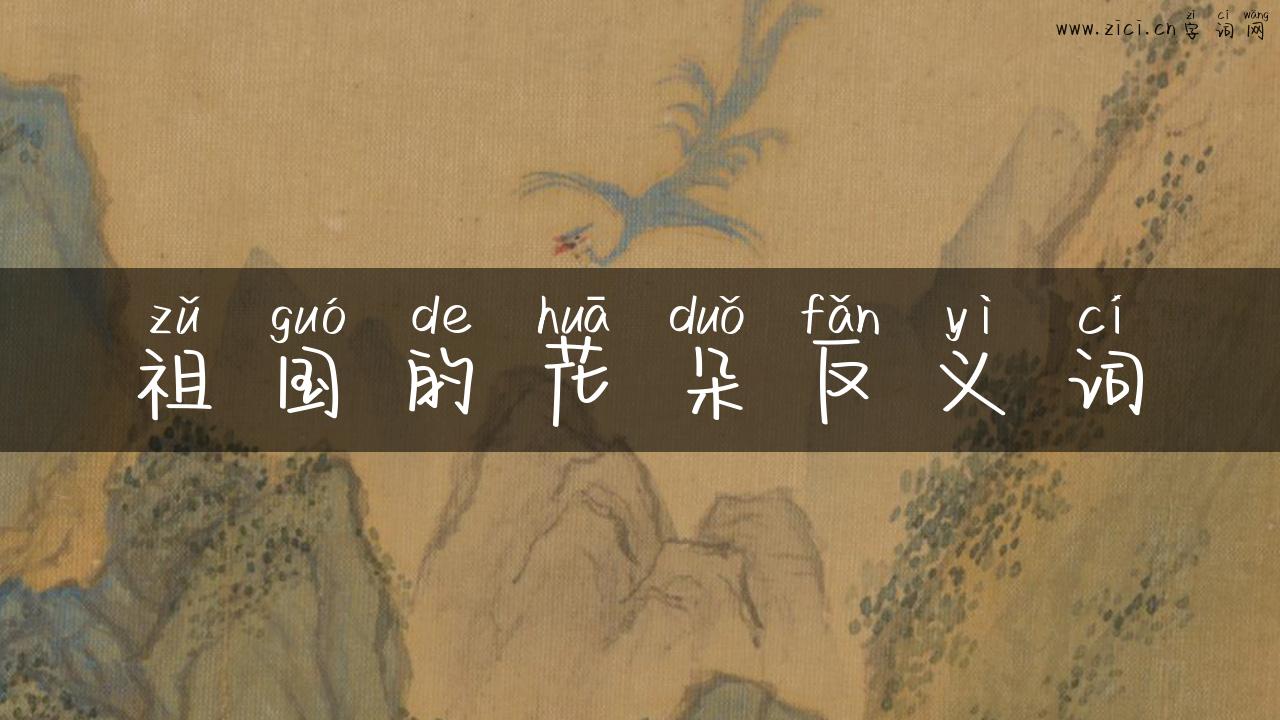 zì cí wǎng
www.zici.cn字词网
zǔ guó de huā duǒ fǎn yì cí
祖国的花朵反义词